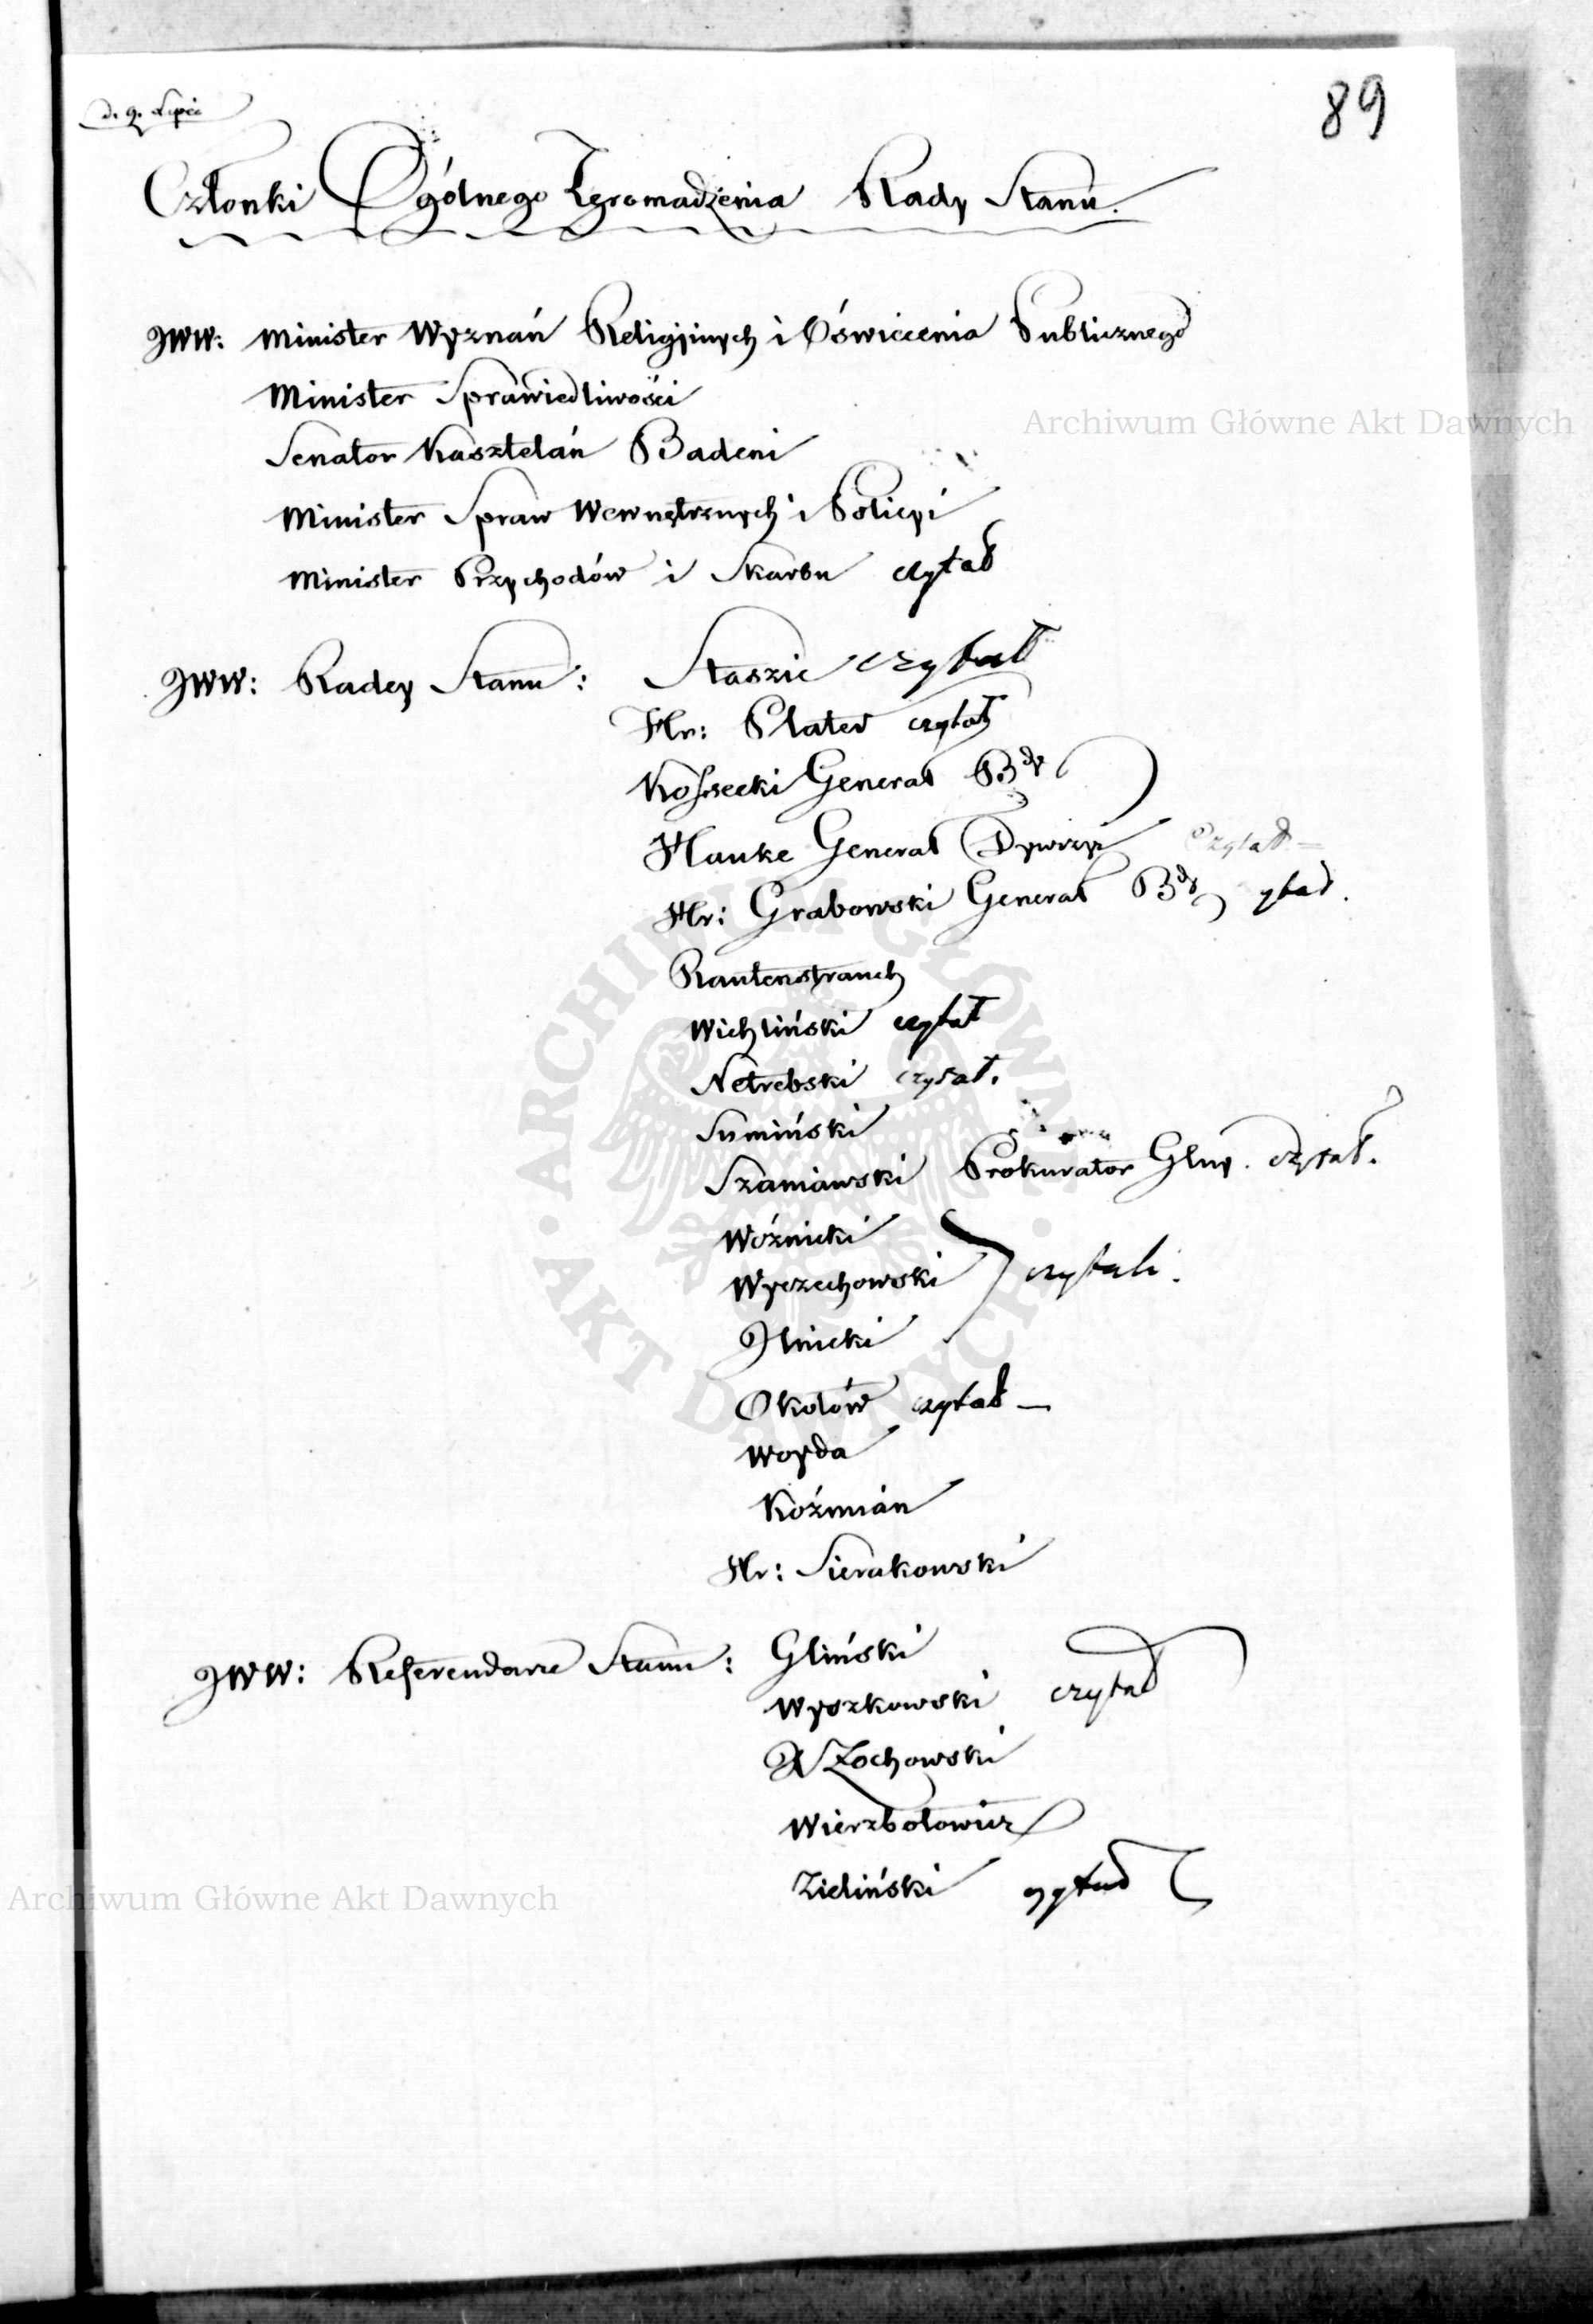 89
d. 9. Lipca
Członki Ogólnego Zgromadzenia Rady Stanu.
JWW: Minister Wyznań Religijnych i Oświecenia Publicznego
Minister Sprawiedliwości
Archiwum Główne Akt Dawnych
Senator Kasztelan Badeni
Minister Spraw Wewnętrznych i Policyi
Minister Przychodów i Skarbu czytał
JWW: Radcy Stanu: Staszic czytał
Hr: Plater czytał
Kossecki Generał Bdy
Hauke Generał Dywizyi Czytał
Hr: Grabowski Generał Bdy ytał.
Rautenstrauch
Wichliński czytał
Netrebski czytał.
Sumiński
Szaniawski Prokurator Glny. czytał.
Woźnicki
Wyczechowski czytali.
Jlnicki
Okołów czytał —
Woyda
Koźmian
Hr: Sierakowski
JWW: Referendarze Stanu: Gliński
Wyszkowski czytał
X Żochowski
Wierzbołowicz
Zieliński czytał
Archiwum Główne Akt Dawnych
ARCHIWUM GŁÓWNE AKT DAWNYCH